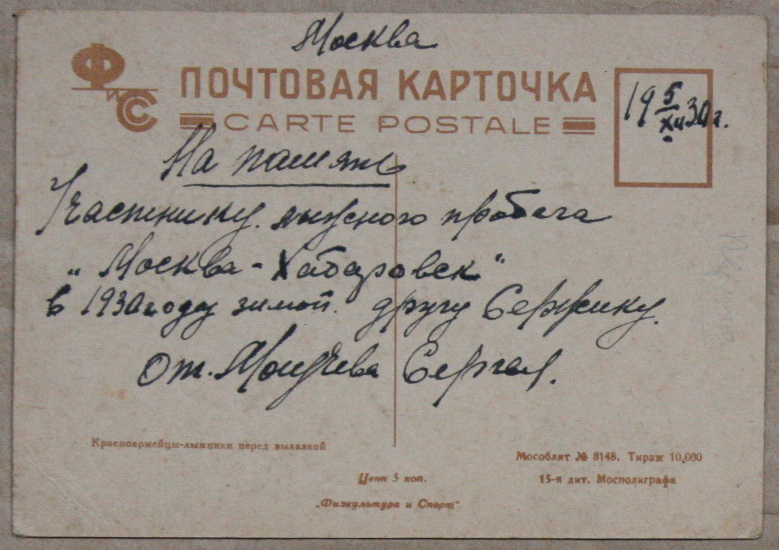 Москва
ФиС
ПОЧТОВАЯ КАРТОЧКА
CARTE POSTALE
19 5/XII 30 г.
На память
Участнику лыжного пробега
„Москва-Хабаровск“
в 1930 году зимой. другу Сержику.
от. Сергея.
Красноармейцы-лыжники перед вылазкой
Мособлит № 8148. Тираж 10,000
Цена 5 коп.
15-я лит. Мосполиграфа
„Физкультура и Спорт“